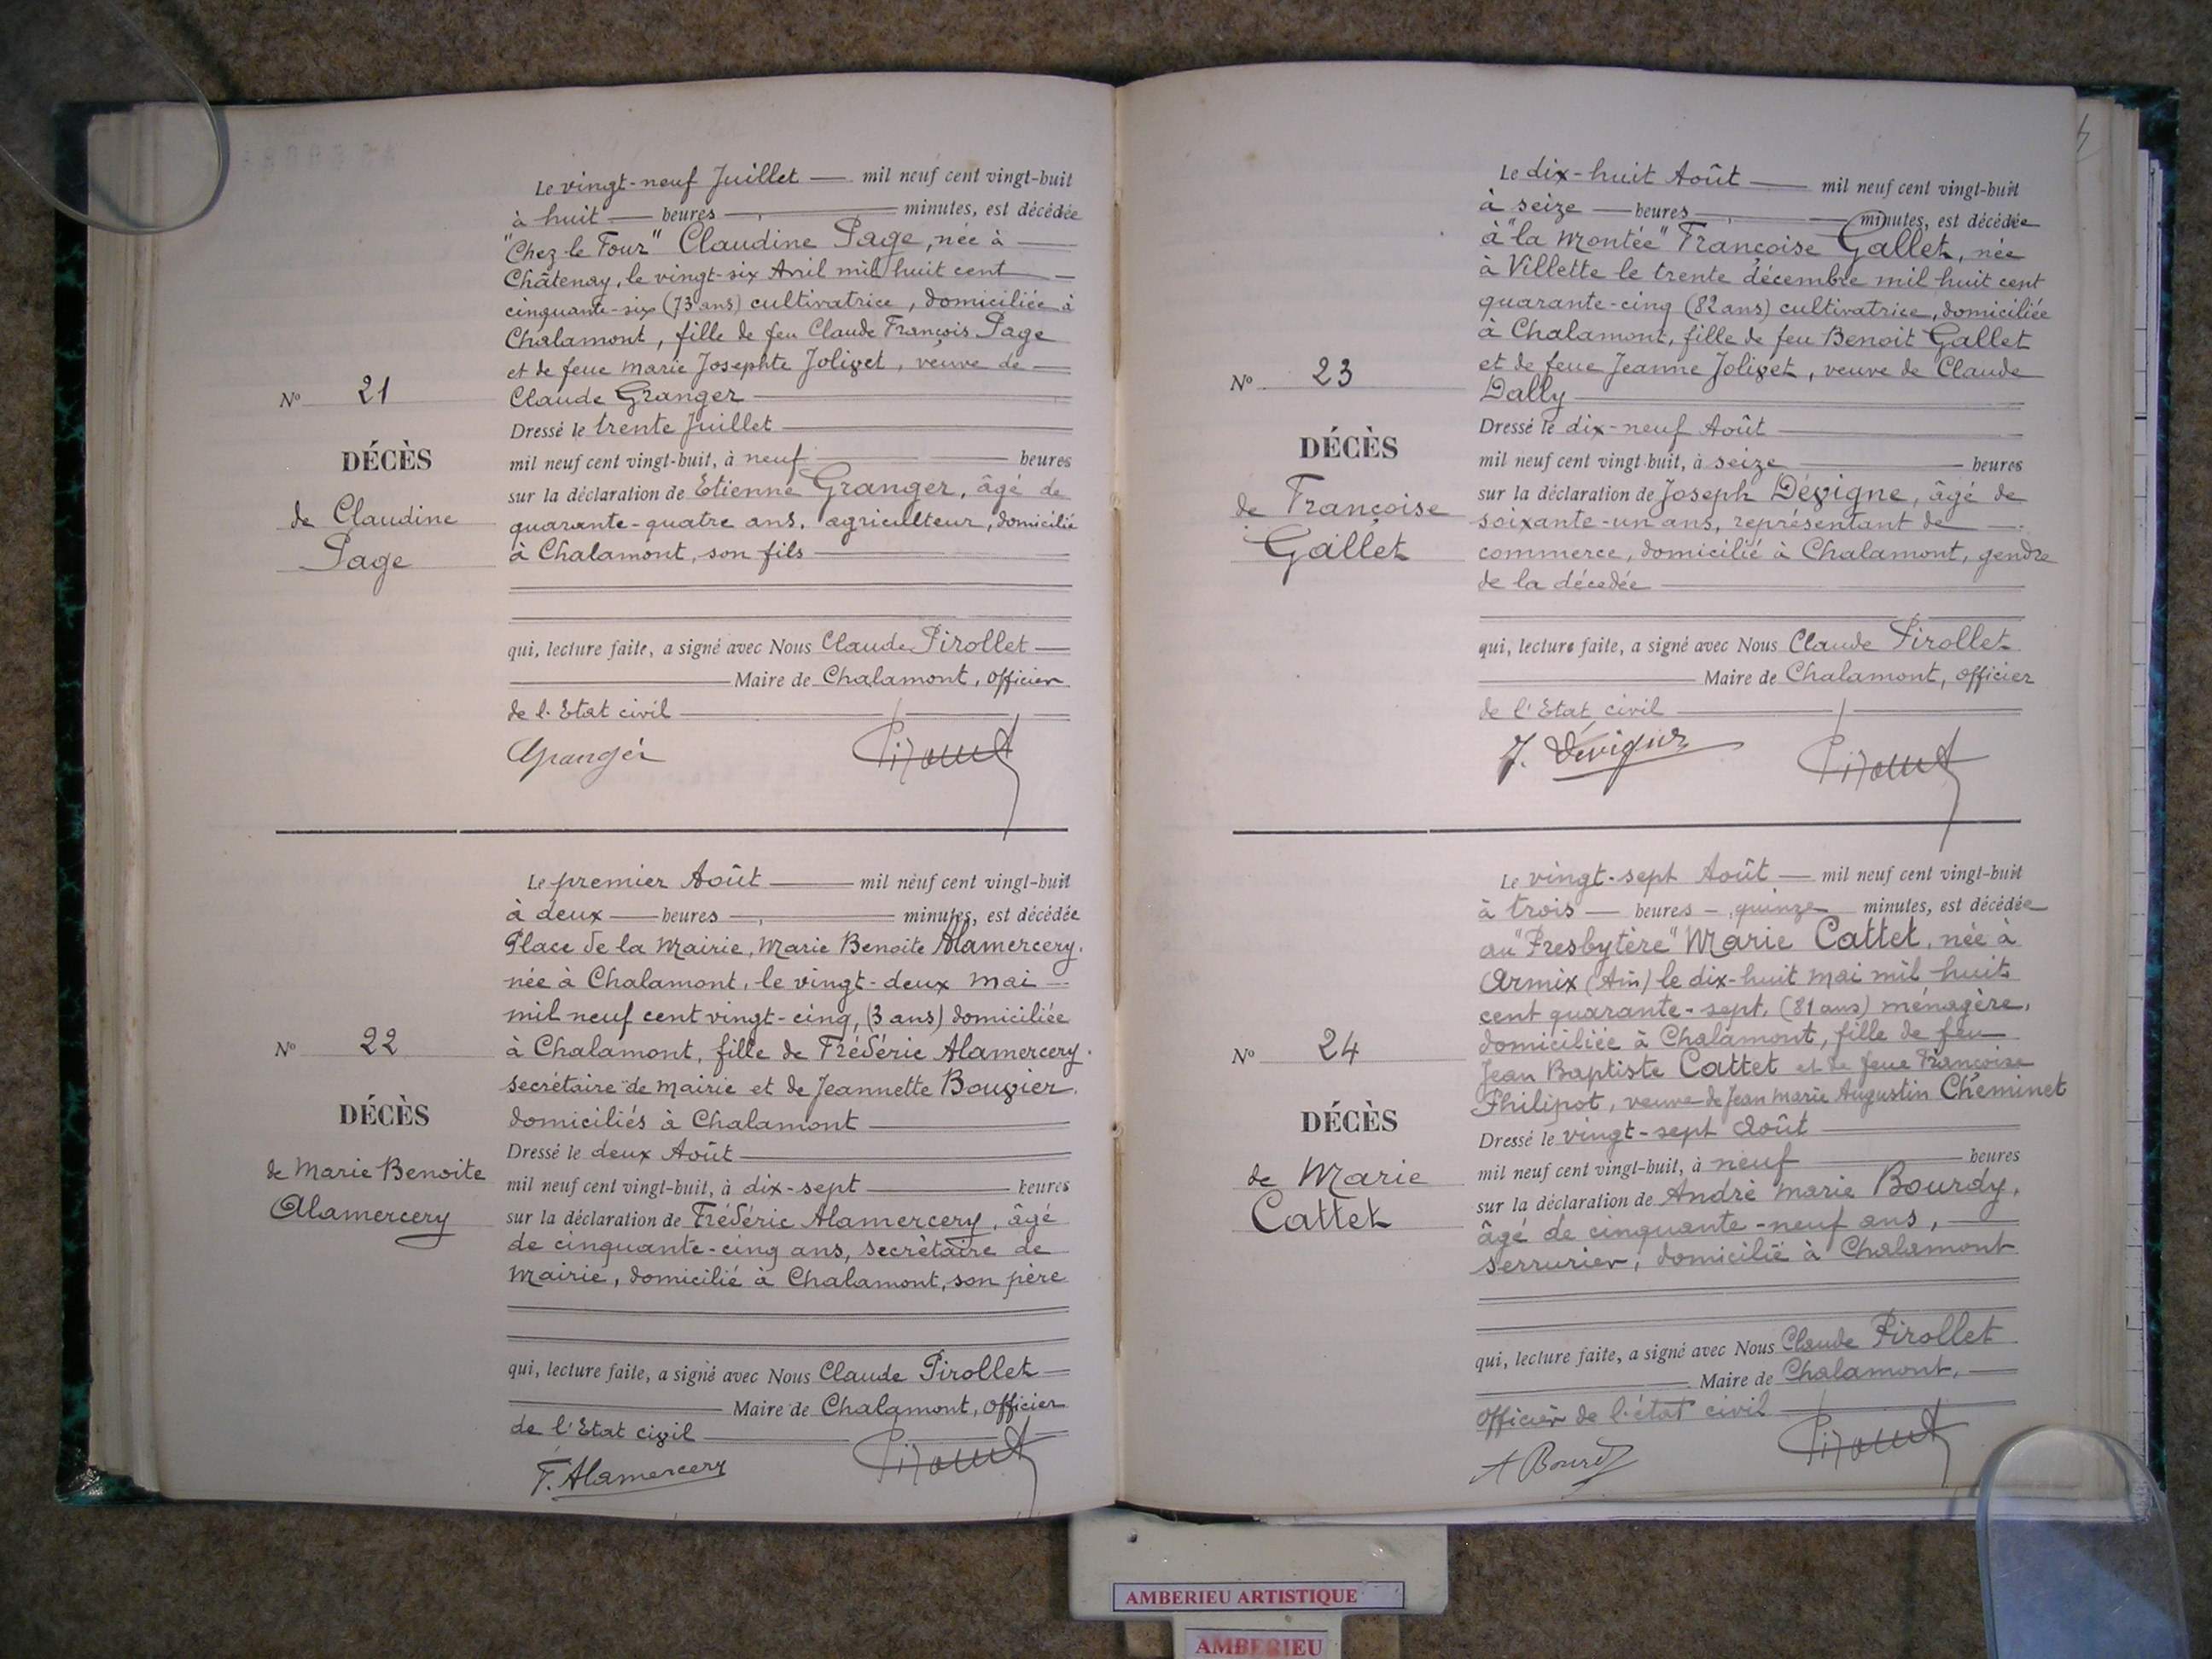 Le vingt-neuf Juillet — mil neuf cent vingt-huit
à huit — heures — , — minutes, est décédée
"Chez-le Four" Claudine Page, née à —
Châtenay, le vingt-six Avril mil huit cent —
cinquante-six (73 ans) cultivatrice, domiciliée à
Chalamont, fille de feu Claude François Page
et de feue Marie Josephte Jolivet, veuve de —
Claude Granger —
Nº 21
Dressé le trente Juillet —
DÉCÈS
mil neuf cent vingt-huit, à neuf — heures
sur la déclaration de Etienne Granger, âgé de
de Claudine
Page
quarante-quatre ans, agriculteur, domicilié
à Chalamont, son fils —
qui, lecture faite, a signé avec Nous Claude Pirollet —
— Maire de Chalamont, officier
de l'Etat civil —
Granger Pirollet
Le premier Août — mil neuf cent vingt-huit
à deux — heures — , — minutes, est décédée
Place de la Mairie, Marie Benoite Alamercery,
née à Chalamont, le vingt-deux Mai —
mil neuf cent vingt-cinq, (3 ans) domiciliée
Nº 22
à Chalamont, fille de Frédéric Alamercery.
secrétaire de Mairie et de Jeannette Bouvier.
domiciliés à Chalamont —
DÉCÈS
Dressé le deux Août —
de Marie Benoite
Alamercery
mil neuf cent vingt-huit, à dix-sept — heures
sur la déclaration de Frédéric Alamercery, âgé
de cinquante-cinq ans, secrètaire de
Mairie, domicilié à Chalamont, son père
qui, lecture faite, a signé avec Nous Claude Pirollet —
— Maire de Chalamont, officier
de l'Etat civil —
F. Alamercery Pirollet
Le dix-huit Août — mil neuf cent vingt-huit
à seize — heures — , — minutes, est décédée
à "la Montée" Françoise Gallet, née
à Villette le trente décembre mil huit cent
quarante-cinq (82 ans) cultivatrice, domiciliée
à Chalamont, fille de feu Benoit Gallet
et de feue Jeanne Jolivet, veuve de Claude
Dally —
Nº 23
Dressé le dix-neuf Août —
DÉCÈS
mil neuf cent vingt-huit, à seize — heures
de Françoise
Gallet
sur la déclaration de Joseph Dévigne, âgé de
soixante-un ans, représentant de —
commerce, domicilié à Chalamont, gendre
de la décedée —
qui, lecture faite, a signé avec Nous Claude Pirollet
— Maire de Chalamont, officier
de l'Etat civil —
J. Dévigne Pirollet
Le vingt-sept Août — mil neuf cent vingt-huit
à trois — heures — quinze minutes, est décédée
au "Presbytère" Marie Cattet, née à
Armix (Ain) le dix-huit mai mil huit
cent quarante-sept, (81 ans) ménagère,
domiciliée à Chalamont, fille de feu —
Nº 24
Jean Baptiste Cattet et de feue Françoise
Philipot, veuve de Jean Marie Augustin Cheminet
DÉCÈS
Dressé le vingt-sept Août —
de Marie
Cattet
mil neuf cent vingt-huit, à neuf — heures
sur la déclaration de André Marie Bourdy,
âgé de cinquante-neuf ans, —
serrurier, domicilié à Chalamont
qui, lecture faite, a signé avec Nous Claude Pirollet
— Maire de Chalamont, —
officier de l'état civil —
A Bourdy Pirollet
AMBERIEU ARTISTIQUE
AMBERIEU